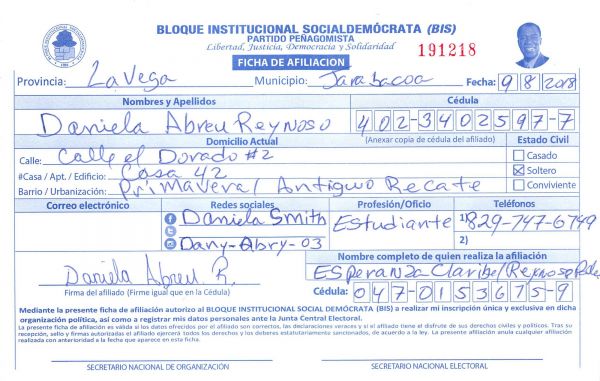 BLOQUE INSTITUCIONAL SOCIALDEMÓCRATA (BIS)
PARTIDO PEÑAGOMISTA
Libertad, Justicia, Democracia y Solidaridad
191218
FICHA DE AFILIACION
Provincia: La Vega Municipio: Jarabacoa Fecha: 9 8 2018
Nombres y Apellidos Cédula
Daniela Abreu Reynoso 402-3402597-7
Domicilio Actual (Anexar copia de cédula del afiliado) Estado Civil
Calle: Calle el Dorado #2 Casado
#Casa / Apt. / Edificio: Casa 42 Soltero
Barrio / Urbanización: Primaveral Antiguo Recate Conviviente
Correo electrónico Redes sociales Profesión/Oficio Teléfonos
Daniela Smith Estudiante 1) 829-747-6749
Dany-Abry-03 2)
Nombre completo de quien realiza la afiliación
Daniela Abreu R. Esperanza Claribel Reynoso
Firma del afiliado (Firme igual que en la Cédula) Cédula: 047-0153675-9
Mediante la presente ficha de afiliación autorizo al BLOQUE INSTITUCIONAL SOCIAL DEMÓCRATA (BIS) a realizar mi inscripción única y exclusiva en dicha
organización política, así como a registrar mis datos personales ante la Junta Central Electoral.
La presente ficha de afiliación es válida si los datos ofrecidos por el afiliado son correctos, las declaraciones veraces y si el afiliado tiene el disfrute de sus derechos civiles y políticos. Tras su
recepción, sello y firmas autorizadas el afiliado ejercerá todos los derechos y los deberes estatutariamente sancionados, de acuerdo a la ley. La presente afiliación anula cualquier afiliación
realizada con anterioridad a la fecha que aparece en esta ficha.
SECRETARIO NACIONAL DE ORGANIZACIÓN SECRETARIO NACIONAL ELECTORAL